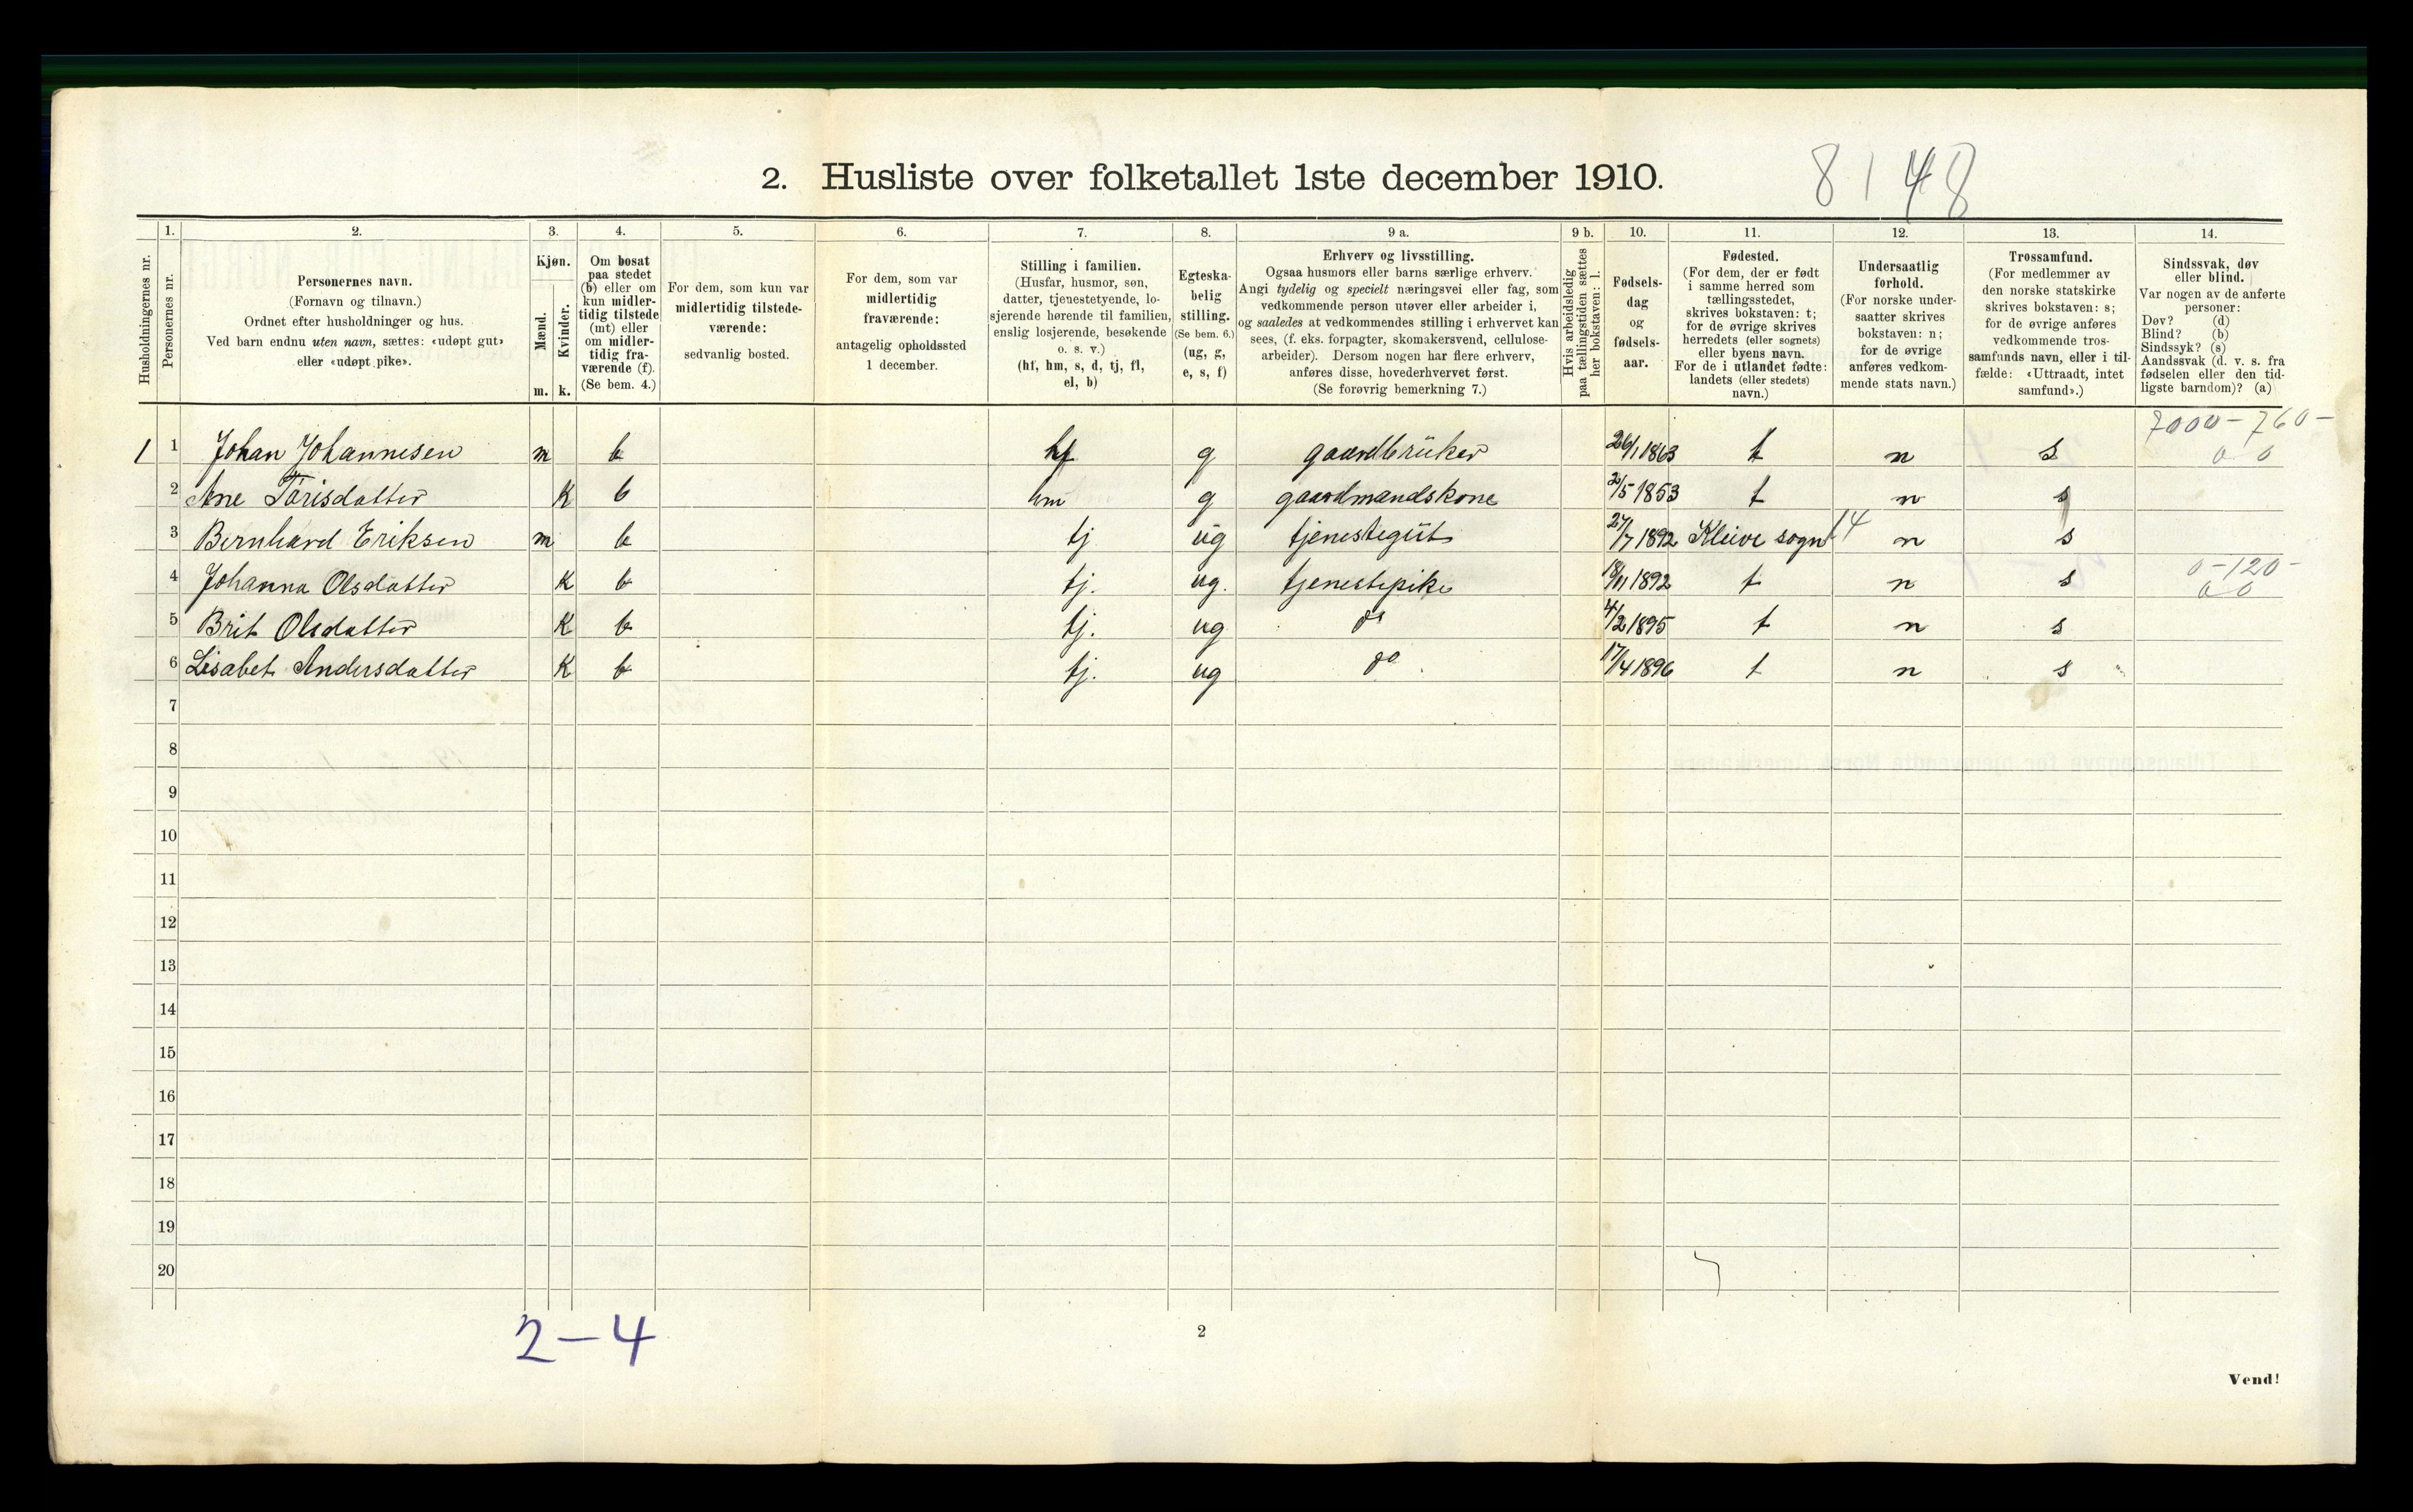 2. Husliste over folketallet 1ste december 1910.
8148
Husholdningernes nr.
1. Personernes nr.
2. Personernes navn.
(Fornavn og tilnavn.)
Ordnet efter husholdninger og hus.
Ved barn endnu uten navn, sættes: «udøpt gut»
eller «udøpt pike».
3. Kjøn.
Mænd. m.
Kvinder. k.
4. Om bosat
paa stedet
(b) eller om
kun midler-
tidig tilstede
(mt) eller
om midler-
tidig fra-
værende (f).
(Se bem. 4.)
5. For dem, som kun var
midlertidig tilstede-
værende:
sedvanlig bosted.
6. For dem, som var
midlertidig
fraværende:
antagelig opholdssted
1 december.
7. Stilling i familien.
(Husfar, husmor, søn,
datter, tjenestetyende, lo-
sjerende hørende til familien,
enslig losjerende, besøkende
o. s. v.)
(hf, hm, s, d, tj, fl,
el, b)
8. Egteska-
belig
stilling.
(Se bem. 6.)
(ug, g,
e, s, f)
9 a. Erhverv og livsstilling.
Ogsaa husmors eller barns særlige erhverv.
Angi tydelig og specielt næringsvei eller fag, som
vedkommende person utøver eller arbeider i,
og saaledes at vedkommendes stilling i erhvervet kan
sees, (f. eks. forpagter, skomakersvend, cellulose-
arbeider). Dersom nogen har flere erhverv,
anføres disse, hovederhvervet først.
(Se forøvrig bemerkning 7.)
9 b. Hvis arbeidsledig
paa tællingstiden sættes
her bokstaven: l.
10. Fødsels-
dag
og
fødsels-
aar.
11. Fødested.
(For dem, der er født
i samme herred som
tællingsstedet,
skrives bokstaven: t;
for de øvrige skrives
herredets (eller sognets)
eller byens navn.
For de i utlandet fødte:
landets (eller stedets)
navn.)
12. Undersaatlig
forhold.
(For norske under-
saatter skrives
bokstaven: n;
for de øvrige
anføres vedkom-
mende stats navn.)
13. Trossamfund.
(For medlemmer av
den norske statskirke
skrives bokstaven: s;
for de øvrige anføres
vedkommende tros-
samfunds navn, eller i til-
fælde: «Uttraadt, intet
samfund».)
14. Sindssvak, døv
eller blind.
Var nogen av de anførte
personer:
Døv? (d)
Blind? (b)
Sindssyk? (s)
Aandssvak (d. v. s. fra
fødselen eller den tid-
ligste barndom)? (a)
7000-760-
1 1 Johan Johannesen m b hf g gaardbrüker 26/1 1863 t n s 0 0
2 Ane Tørisdatter K b hm g gaardmandskone 2/5 1853 t n s
3 Bernhard Eriksen m b tj ug tjenestegüt 27/7 1892 Kleive sogn 14 n s
4 Johanna Olsdatter K b tj. ug. tjenestepike 18/11 1892 t n s 0-120-
0 0
5 Brit Olsdatter K b tj. ug do 4/2 1895 t n s
6 Lisabet Andersdatter K b tj. ug do 17/4 1896 t n s
7
8
9
10
11
12
13
14
15
16
17
18
19
20
2-4
2
Vend!